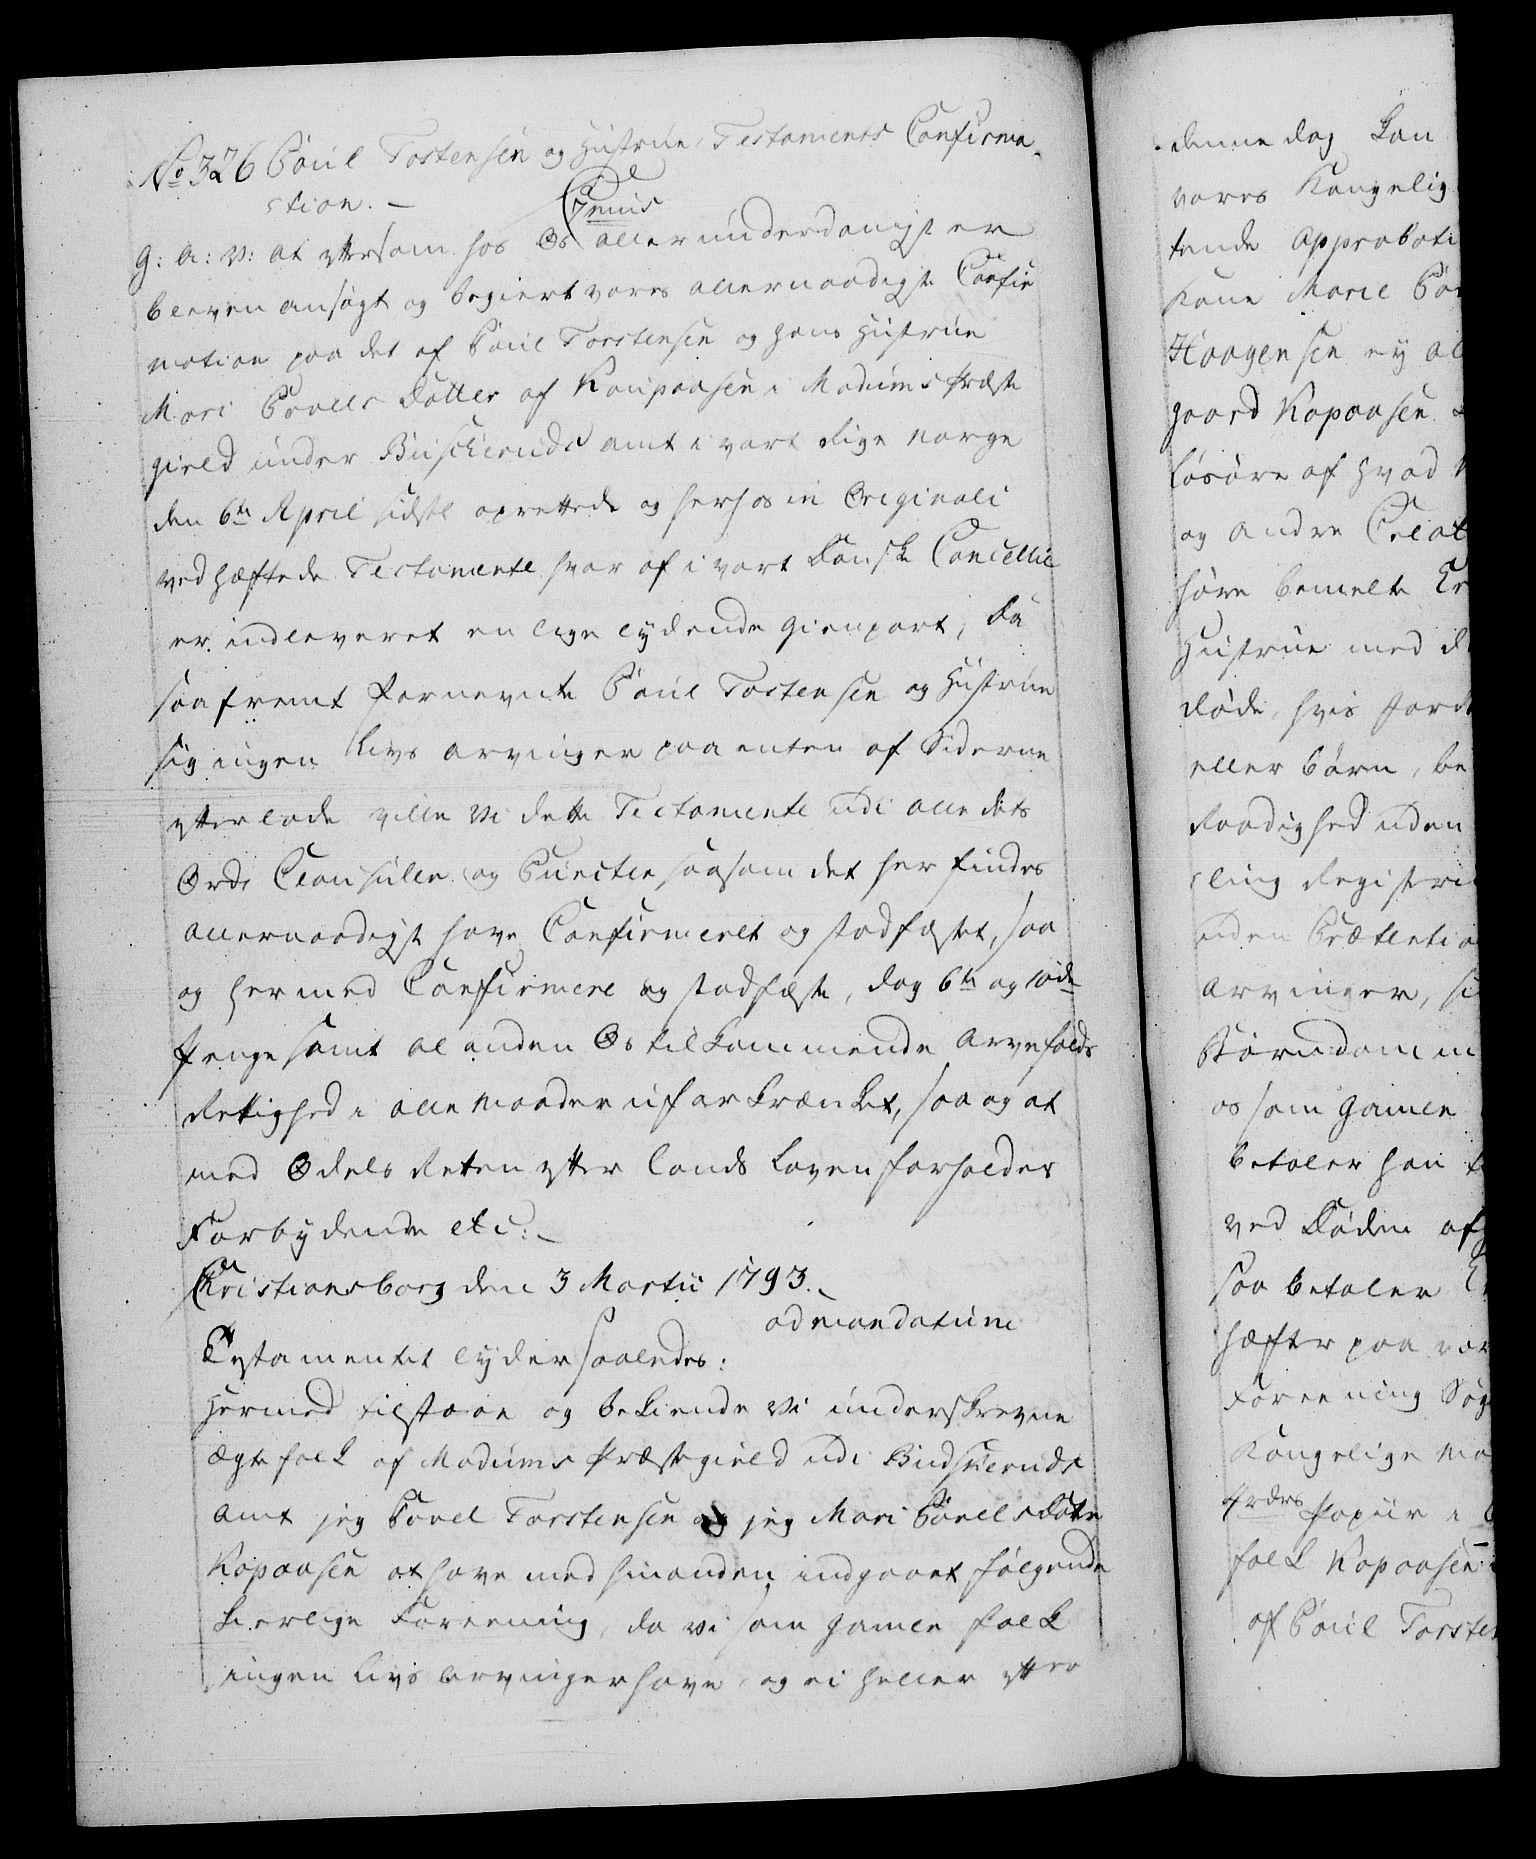 No 326 Poul Tostensen og Hustrue Testaments Confirma-
stion. -
Gemis
G: A: V: at eftersom hos Os allerunderdanigst er
bleven ansøgt og begiert vores allernaadigste Confir
mation paa det af Poul Torstensen og hans Hustrue
Mari Povels Datter af Koupaasen i Modums Præste
gield under Buscheruds amt i vort Rige Norge
den 6te April sidstl oprettede og herhos in Originali
vedhæftede Testamente hvor af i vort Danske Cancellie
er indleveret en lige lydende Gienpart, Da
saafremt fornevnte Poul Tostensen og Hustrue
sig ingen Livs arvinger paa enten af Siderne
efterlade ville Vi dette Testamente udi alle dets
Ord Clausuler og Puncter saasom det her findes
allernaadigst have Confirmeret og stadfæstet, saa
og hermed Confirmere og stadfæste, dog 6te og 10de
Penge samt al anden Os tilkommende Arvefalds
Rettighed i alle Maader uforkrænket, saa og at
med Odels Retten efter Lands Loven forholdes
Forbydende etc: -
Christiansborg den 3 Martii 1793. -
ad mandatum
Testamentet lyder saaledes:
Hermed tilstaae og bekiende Vi underskrevne
Ægtefolk af Modums Præstegield udi Budskeruds
Amt jeg Povel Torstensen og jeg Mari Povelsdatr
Kopaasen at have med hinanden indgaaet følgende
kierlige Foreening, da vi som gamle folk
ingen Livs Arvinger have, og ei heller efter
denne dag kan
vores Kongelig
tende Approbati
Kone Marie Pov
Haagensen ey al
gaard Kopaasen
Løsøre af hvad
og andre Creat
høre bemelte
Hustrue med
døde, hvis ford
eller Børn, be
Raadighed uden
ling Registri
uden Prætentio
Arvinger,
Barndom
os som gamle
betaler han
ved Døden af
saa betaler
hæfter paa vor
Foreening Søg
Kongelige Ma
Ordres Papiir i
folk Kopaasen
af Poul Torsten